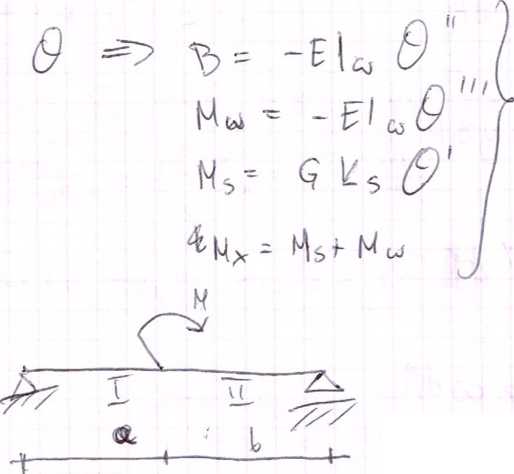 θ ⇒ B = -EI_ω θ''
M_ω = -EI_ω θ'''
M_s = G K_s θ'
M_x = M_s + M_ω
M
I II
a b